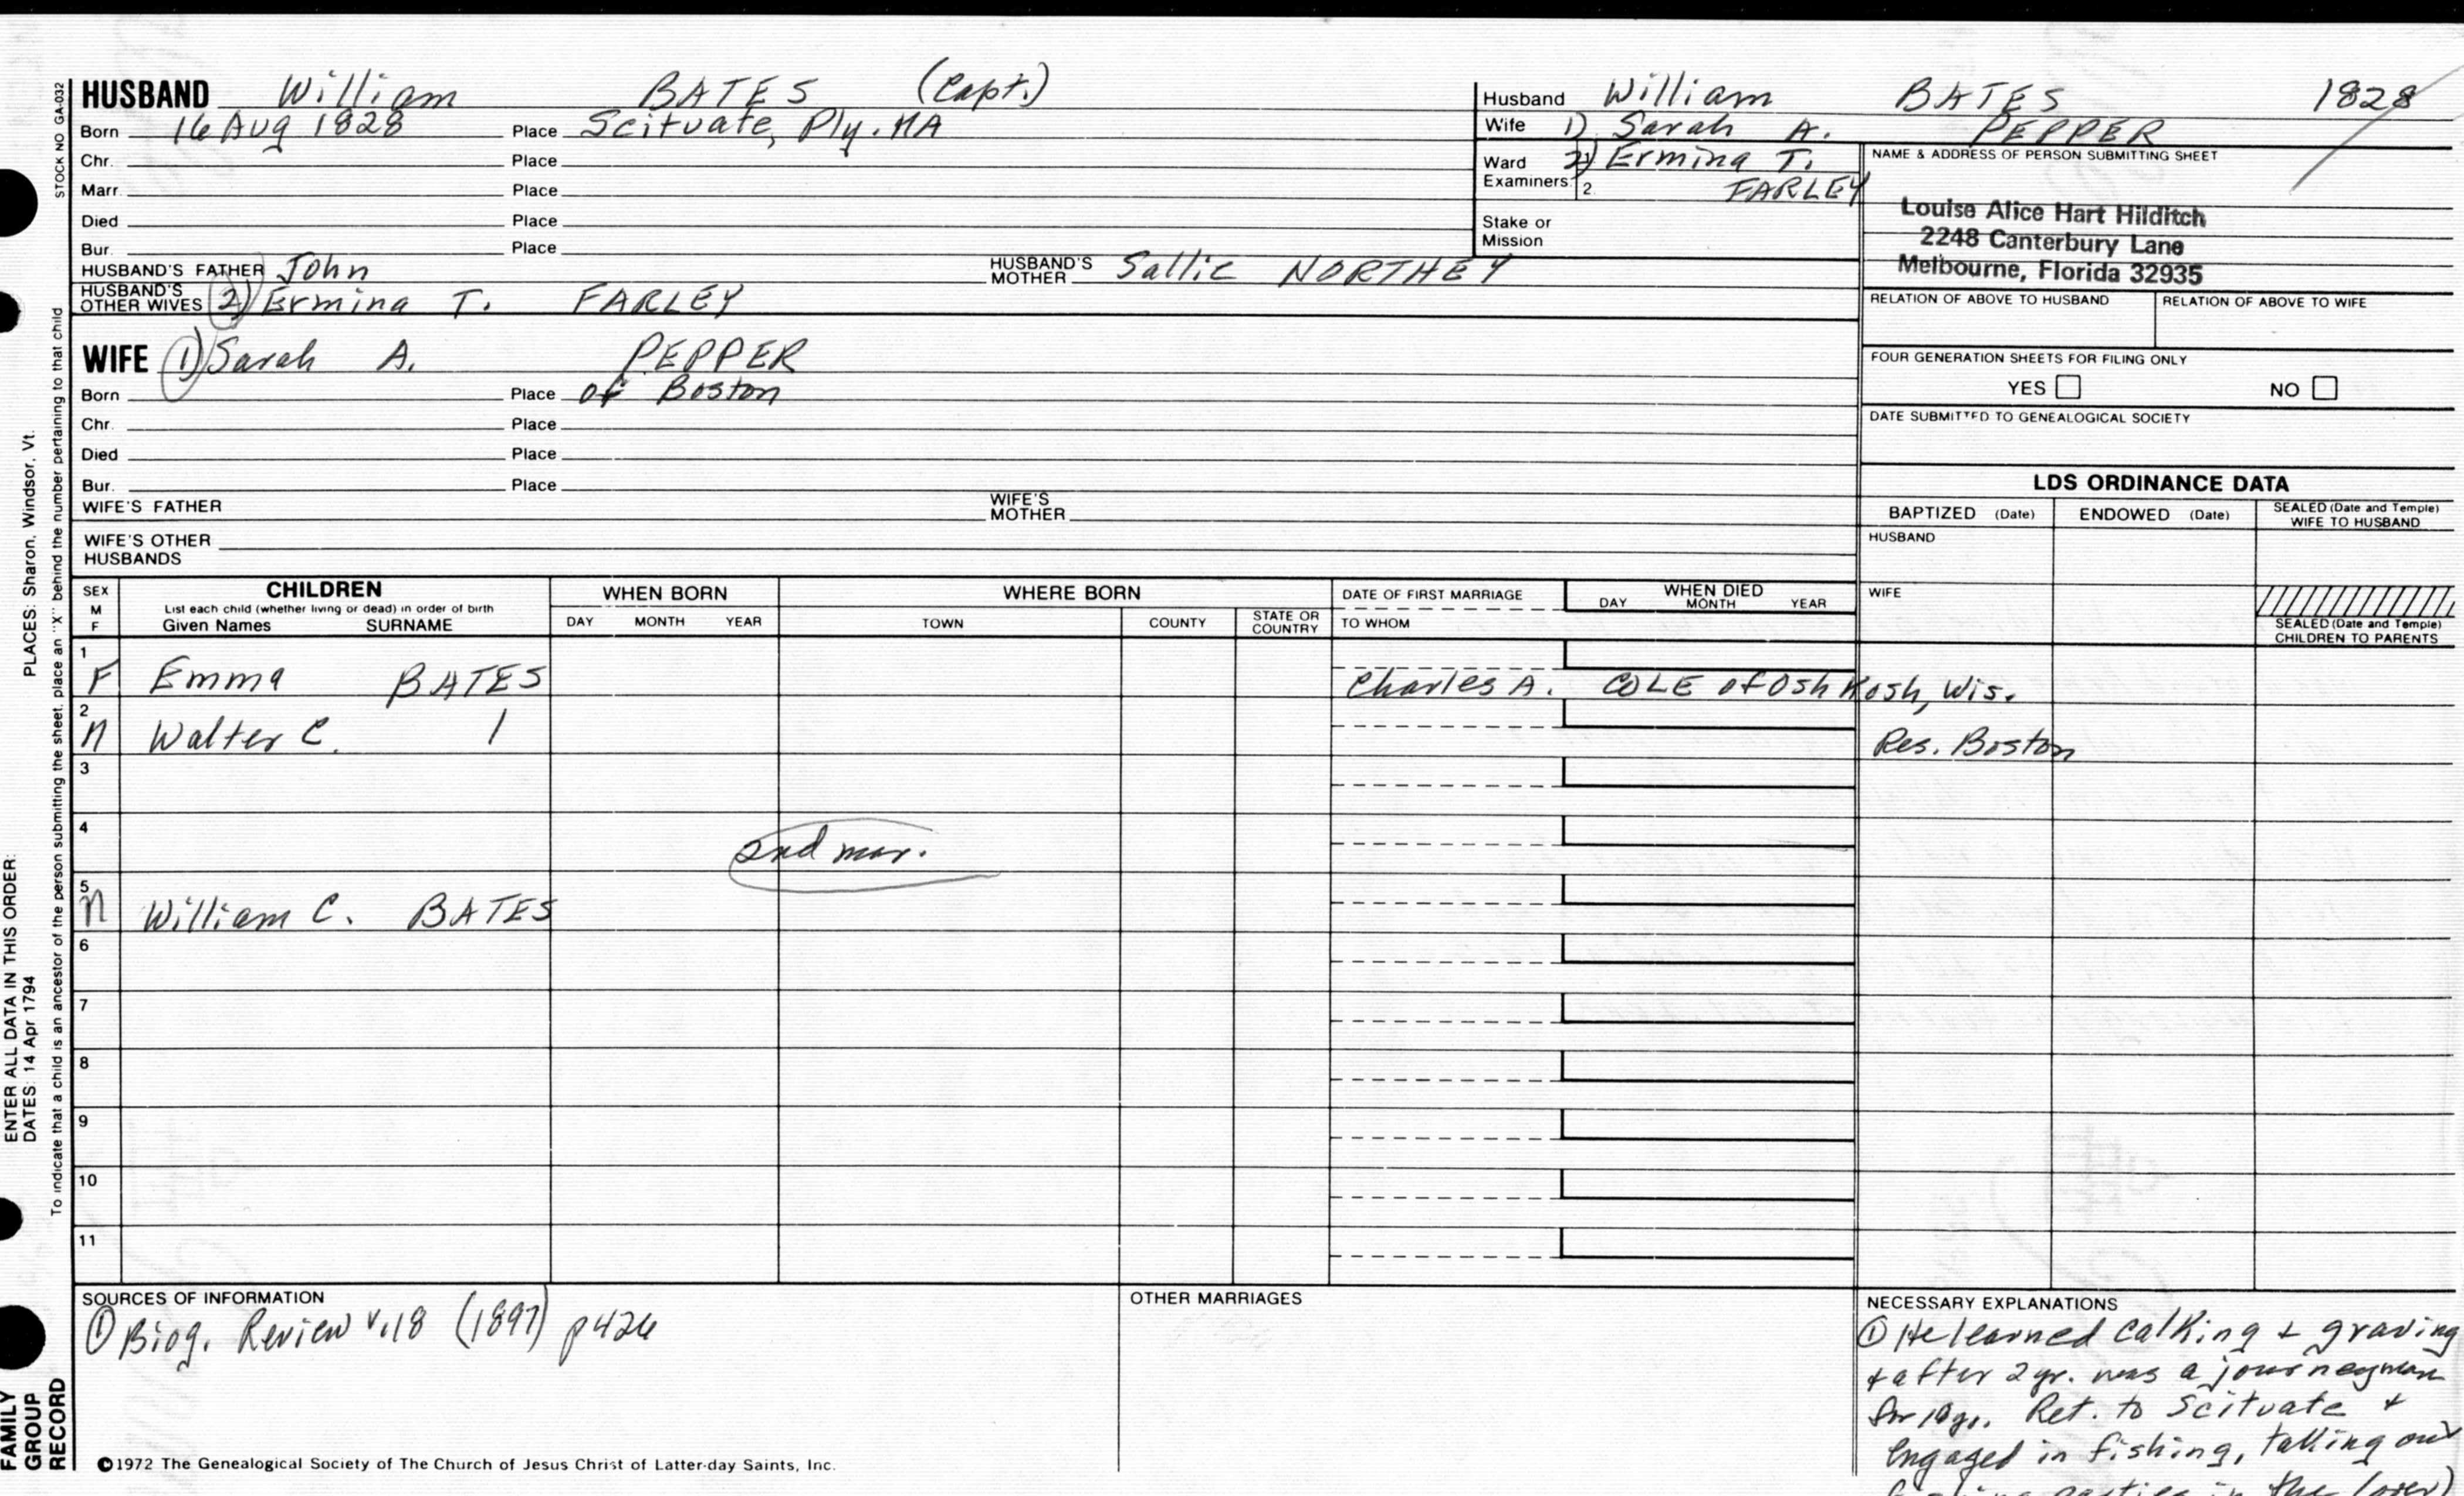 HUSBAND William BATES (Capt.)
Born 16 Aug 1828 Place Scituate, Ply. MA
Chr. Place
Marr. Place
Died Place
Bur. Place
HUSBAND'S FATHER John HUSBAND'S MOTHER Sallie NORTHEY
HUSBAND'S OTHER WIVES (2) Ermina T. FARLEY
WIFE (1) Sarah A. PEPPER
Born Place of Boston
Chr. Place
Died Place
Bur. Place
WIFE'S FATHER WIFE'S MOTHER
WIFE'S OTHER HUSBANDS
Husband William BATES 1828
Wife 1) Sarah A. PEPPER
Ward 2) Ermina T.
Examiners: 2. FARLEY
Stake or Mission
NAME & ADDRESS OF PERSON SUBMITTING SHEET
Louise Alice Hart Hilditch
2248 Canterbury Lane
Melbourne, Florida 32935
RELATION OF ABOVE TO HUSBAND RELATION OF ABOVE TO WIFE
FOUR GENERATION SHEETS FOR FILING ONLY
YES NO
DATE SUBMITTED TO GENEALOGICAL SOCIETY
LDS ORDINANCE DATA
BAPTIZED (Date) ENDOWED (Date) SEALED (Date and Temple) WIFE TO HUSBAND
HUSBAND
WIFE
SEALED (Date and Temple) CHILDREN TO PARENTS
SEX M F CHILDREN WHEN BORN WHERE BORN DATE OF FIRST MARRIAGE WHEN DIED
List each child (whether living or dead) in order of birth
Given Names SURNAME DAY MONTH YEAR TOWN COUNTY STATE OR COUNTRY TO WHOM DAY MONTH YEAR
1
F Emma BATES Charles A. COLE of Osh Kosh, Wis.
2
M Walter C. Res. Boston
3
4
2nd mar.
5
M William C. BATES
6
7
8
9
10
11
SOURCES OF INFORMATION
① Biog. Review v.18 (1897) p426
OTHER MARRIAGES
NECESSARY EXPLANATIONS
① He learned calking + graving
+ after 2 yr. was a journeyman
for 10 yr. Ret. to Scituate +
engaged in fishing, taking out
parties in the (over)
©1972 The Genealogical Society of The Church of Jesus Christ of Latter-day Saints, Inc.
STOCK NO GA-032
To indicate that a child is an ancestor of the person submitting the sheet, place an "X" behind the number pertaining to that child
PLACES: Sharon, Windsor, Vt.
ENTER ALL DATA IN THIS ORDER:
DATES: 14 Apr 1794
FAMILY
GROUP
RECORD